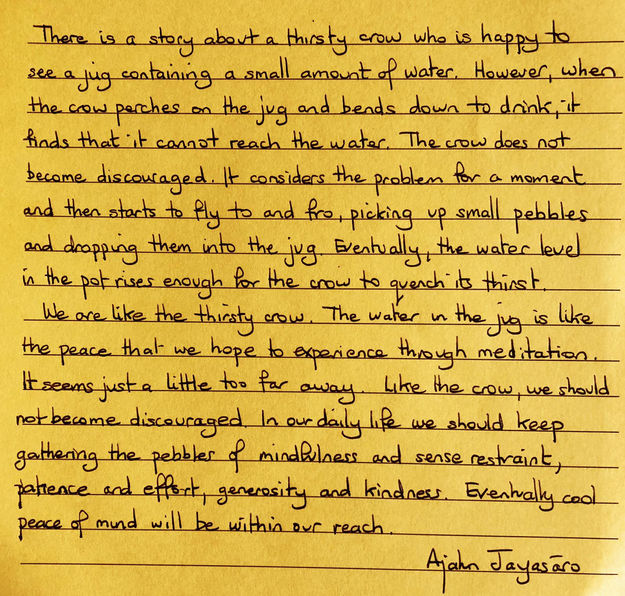 There is a story about a thirsty crow who is happy to
see a jug containing a small amount of water. However, when
the crow perches on the jug and bends down to drink, it
finds that it cannot reach the water. The crow does not
become discouraged. It considers the problem for a moment
and then starts to fly to and fro, picking up small pebbles
and dropping them into the jug. Eventually, the water level
in the pot rises enough for the crow to quench its thirst.
We are like the thirsty crow. The water in the jug is like
the peace that we hope to experience through meditation.
It seems just a little too far away. Like the crow, we should
not become discouraged. In our daily life we should keep
gathering the pebbles of mindfulness and sense restraint,
patience and effort, generosity and kindness. Eventually cool
peace of mind will be within our reach.
Ajahn Jayasāro